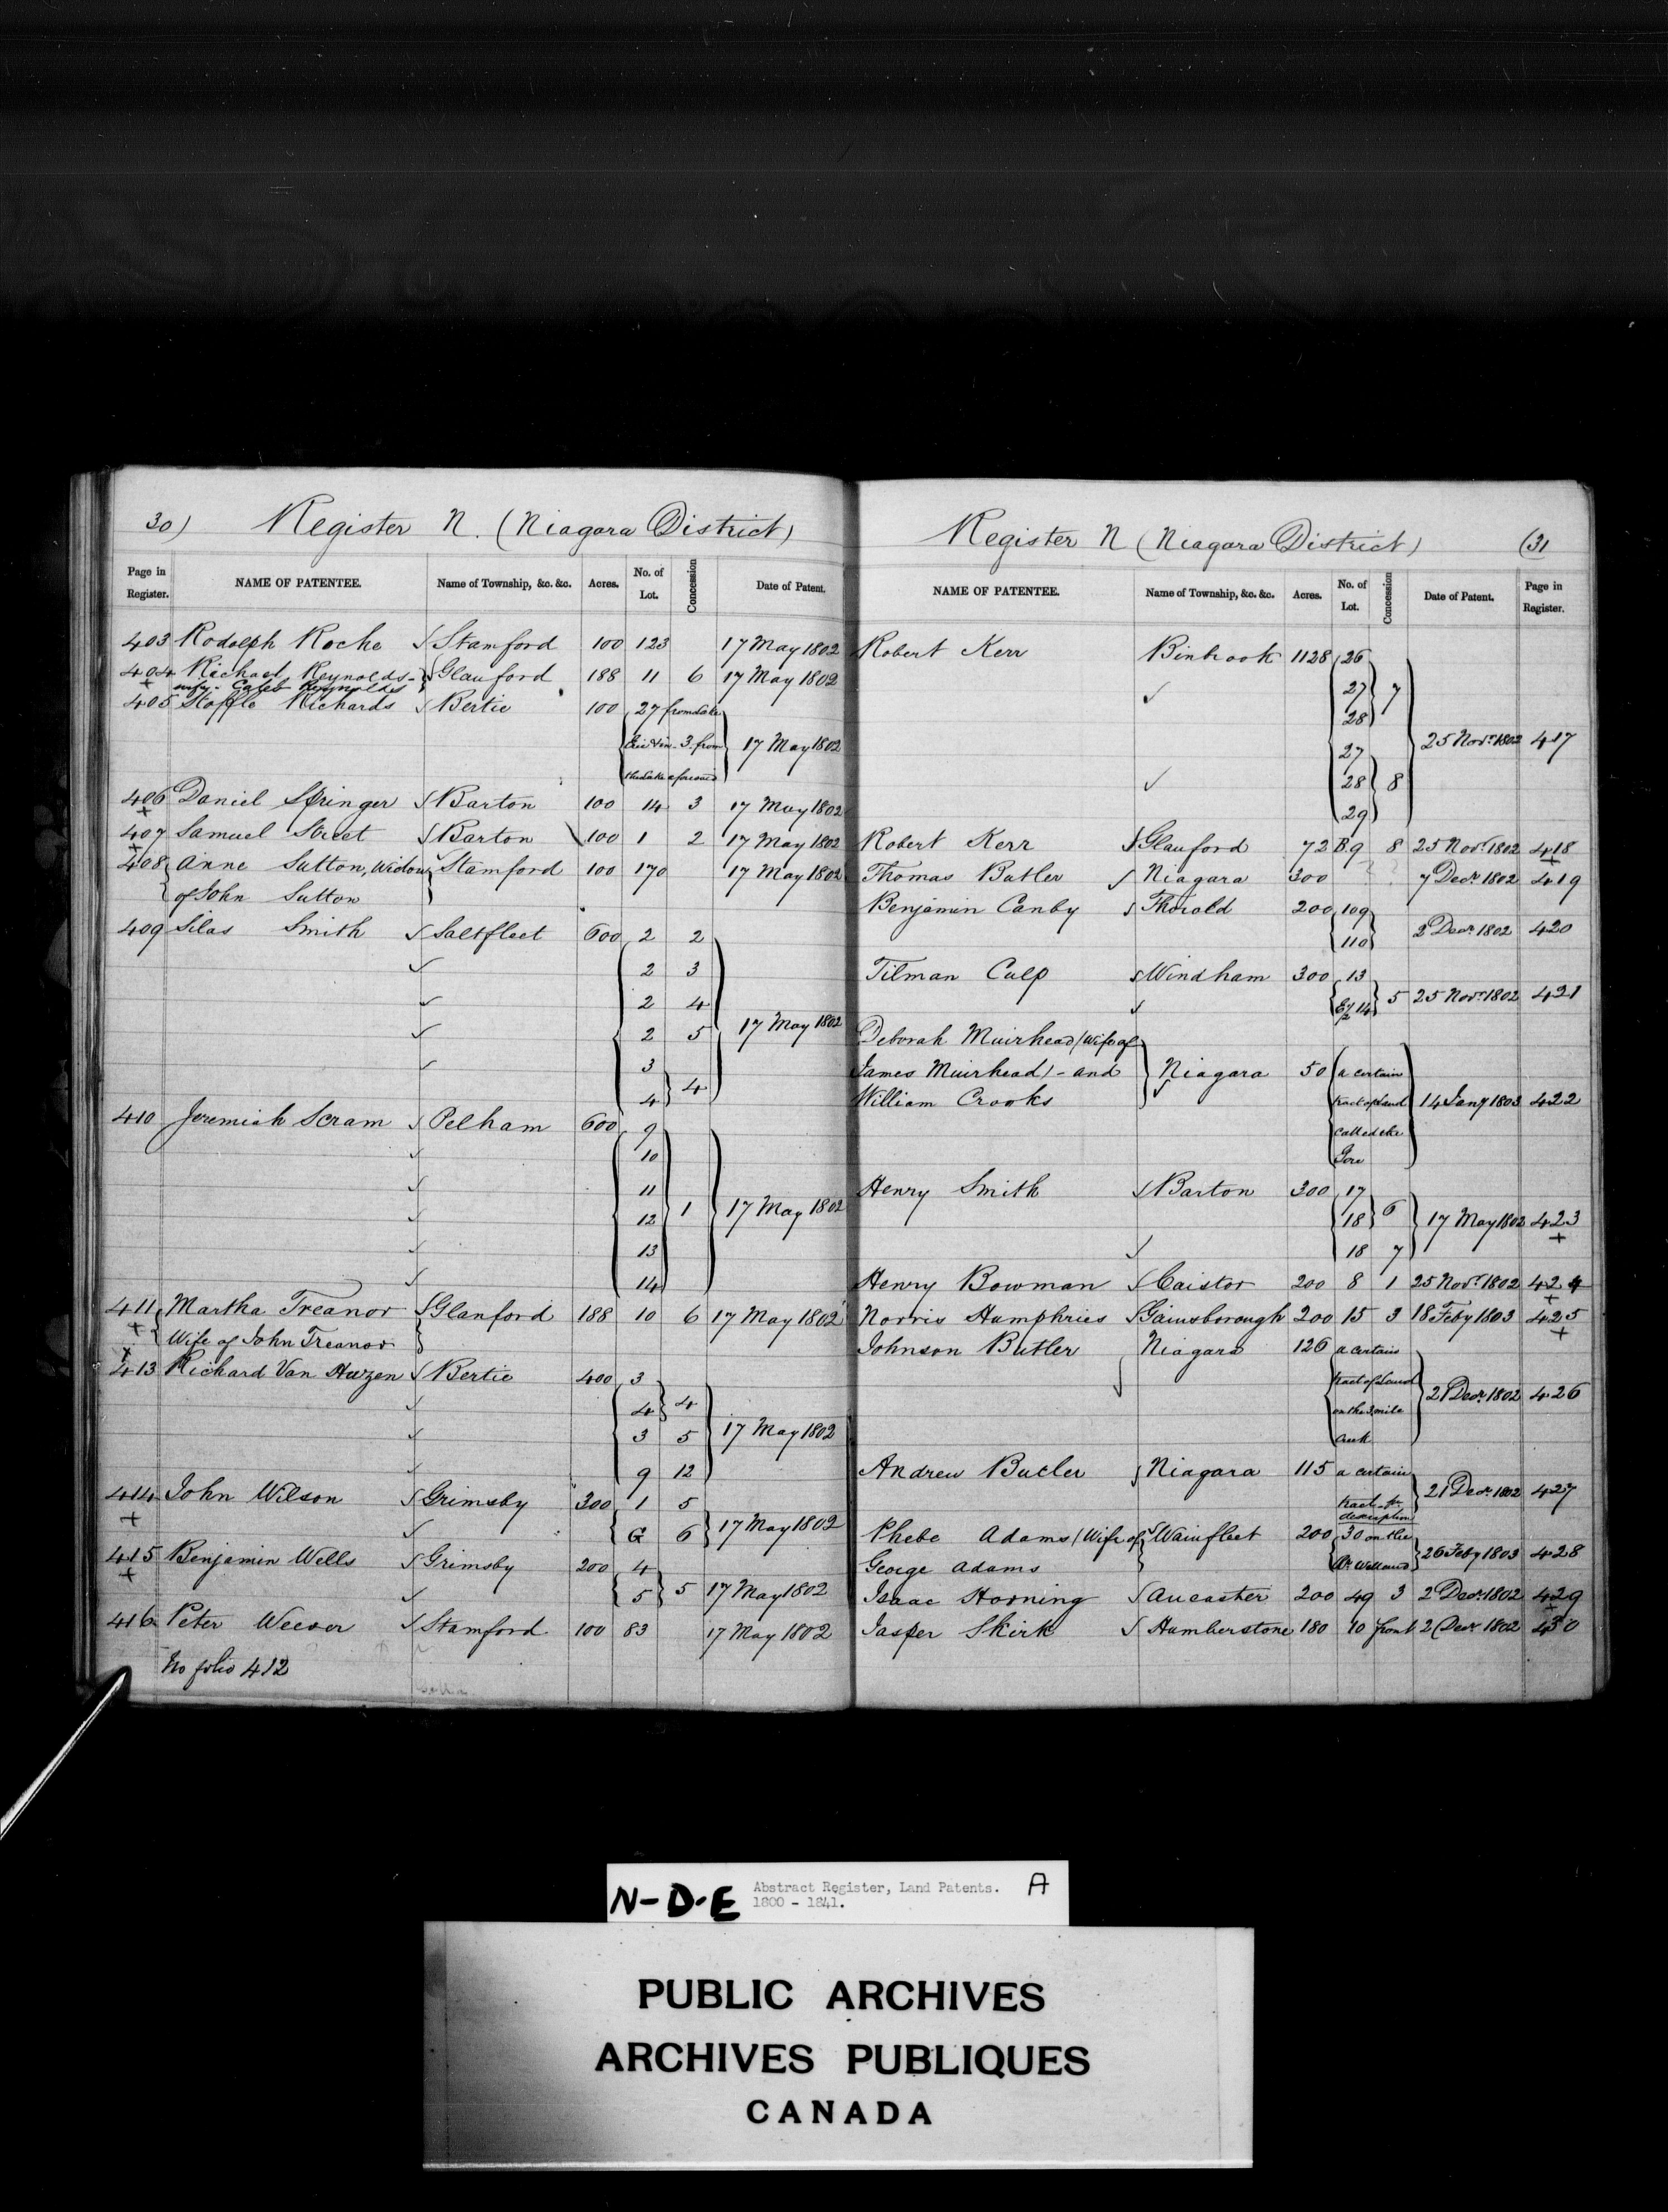 30) Register N. (Niagara District)
Page in Register. NAME OF PATENTEE. Name of Township, &c. &c. Acres. No. of Lot. Concession Date of Patent.
403 Rodolph Roche Stamford 100 123 17 May 1802
404 Richael Reynolds- Glanford 188 11 6 17 May 1802
wife- Caleb Reynolds
405 Stoffle Richards Bertie 100 27 from Lake
Erie & in 3 from 17 May 1802
the Lake aforesaid
406 Daniel Springer Barton 100 14 3 17 May 1802
407 Samuel Street Barton 100 1 2 17 May 1802
408 Anne Sutton, Widow Stamford 100 170 17 May 1802
of John Sutton
409 Silas Smith Saltfleet 600 2 2
2 3
2 4
2 5 17 May 1802
3
4 4
410 Jeremiah Scram Pelham 600 9
10
11
12 1 17 May 1802
13
14
411 Martha Treanor Glanford 188 10 6 17 May 1802
Wife of John Treanor
413 Richard Van Huzen Bertie 400 3
4 4
3 5 17 May 1802
9 12
414 John Wilson Grimsby 300 1 5
G 6 17 May 1802
415 Benjamin Wells Grimsby 200 4
5 5 17 May 1802
416 Peter Weever Stamford 100 83 17 May 1802
No folio 412
Register N (Niagara District) (31
NAME OF PATENTEE. Name of Township, &c. &c. Acres. No. of Lot. Concession Date of Patent. Page in Register.
Robert Kerr Binbrook 1128 26
27 7
28
27 25 Novr. 1802 417
28 8
29
Robert Kerr Glanford 72 B.9 8 25 Novr. 1802 418
Thomas Butler Niagara 300 7 Decr. 1802 419
Benjamin Canby Thorold 200 109
110 2 Decr. 1802 420
Tilman Culp Windham 300 13
E½ 14 5 25 Novr. 1802 421
Deborah Muirhead (Wife of
James Muirhead) - and Niagara 50 a certain
William Crooks tract of Land 14 Jany 1803 422
called the
Gore
Henry Smith Barton 300 17
18 6 17 May 1802 423
18 7
Henry Bowman Caistor 200 8 1 25 Novr. 1802 424
Norris Humphries Gainsborough 200 15 3 18 Feby 1803 425
Johnson Butler Niagara 126 a certain
tract of Land 21 Decr. 1802 426
on the 3 mile
Creek
Andrew Butler Niagara 115 a certain
tract - pr 21 Decr. 1802 427
description
Phebe Adams (Wife of Wainfleet 200 30 on the
George Adams Rr. Welland 26 Feby 1803 428
Isaac Horning Ancaster 200 49 3 2 Decr. 1802 429
Jasper Skirk Humberstone 180 10 front 2 Decr 1802 430
N-D-E Abstract Register, Land Patents. A
1800 - 1841.
PUBLIC ARCHIVES
ARCHIVES PUBLIQUES
CANADA